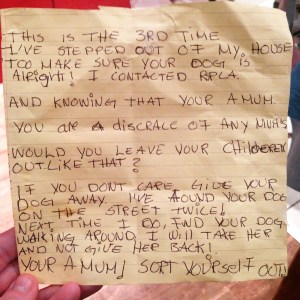 THIS IS THE 3RD TIME
I'VE STEPPED OUT OF MY HOUSE
TOO MAKE SURE YOUR DOG IS
ALRIGHT! I CONTACTED RPCA.
AND KNOWING THAT YOUR A MUM.
YOU ARE A DISCRACE OF ANY MUMS
WOULD YOU LEAVE YOUR CHILDEREN
OUT LIKE THAT?
IF YOU DONT CARE, GIVE YOUR
DOG AWAY. I'VE FOUND YOUR DOG
ON THE STREET TWICE!
NEXT TIME I DO, FIND YOUR DOG
WALKING AROUND I WILL TAKE HER
AND NOT GIVE HER BACK!
YOUR A MUM! SORT YOURSELF OUT!